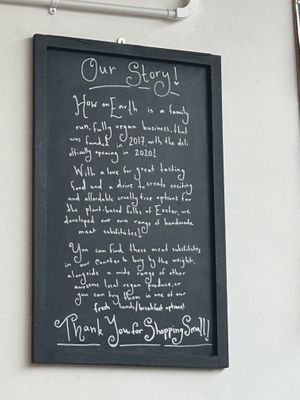 Our Story!
How on Earth is a family
run, fully vegan business, that
was founded in 2017, with the deli
officially opening in 2020!
With a love for great tasting
food and a drive to create exciting
and affordable cruelty free options for
the plant-based folks of Exeter, we
developed our own range of handmade
meat substitutes!
You can find these meat substitutes
in our counter to buy by the weight,
alongside a wide range of other
awesome local vegan produce, or
you can buy them in one of our
fresh lunch/breakfast options!
Thank You, for Shopping Small!